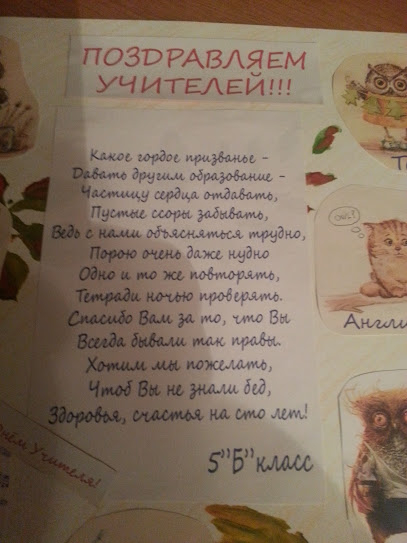 ПОЗДРАВЛЯЕМ
УЧИТЕЛЕЙ!!!
Какое гордое призванье -
Давать другим образование -
Частицу сердца отдавать,
Пустые ссоры забывать,
Ведь с нами объясняться трудно,
Порою очень даже нудно
Одно и то же повторять,
Тетради ночью проверять.
Спасибо Вам за то, что Вы
Всегда бывали так правы.
Хотим мы пожелать,
Чтоб Вы не знали бед,
Здоровья, счастья на сто лет!
5"Б" класс
Учителя!